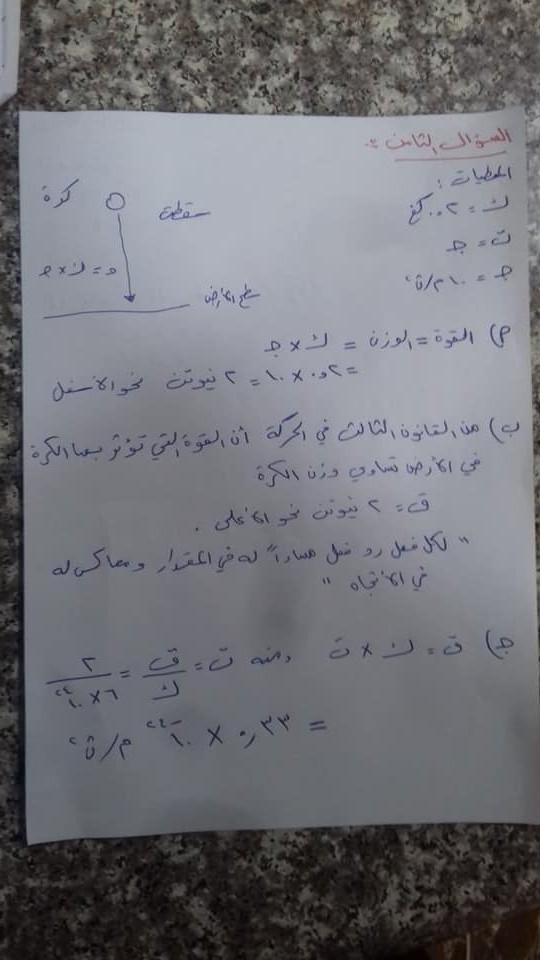 السؤال الثامن :-
المعطيات :
ك = ٠٫٢ كغ
ت = جـ
جـ = ١٠ م/ث²
كرة
سقطت
و = ك × جـ
سطح الأرض
م) القوة = الوزن = ك × جـ
= ٠٫٢ × ١٠ = ٢ نيوتن نحو الأسفل
ب) من القانون الثالث في الحركة أن القوة التي تؤثر بها الكرة
في الأرض تساوي وزن الكرة
ق = ٢ نيوتن نحو الأعلى .
" لكل فعل رد فعل مساراً له في المقدار ومعاكس له
في الاتجاه "
جـ) ق = ك × ت ومنه ت = ق / ك = ٢ / ٦ × ١٠²⁴
= ٠٫٣٣ × ١٠⁻²⁴ م/ث²